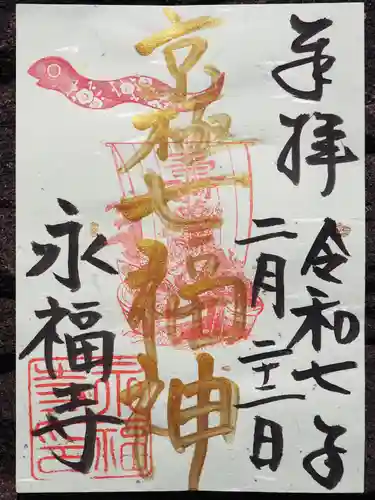 奉拝
令和七年
二月二十一日
京極七福神
永福寺